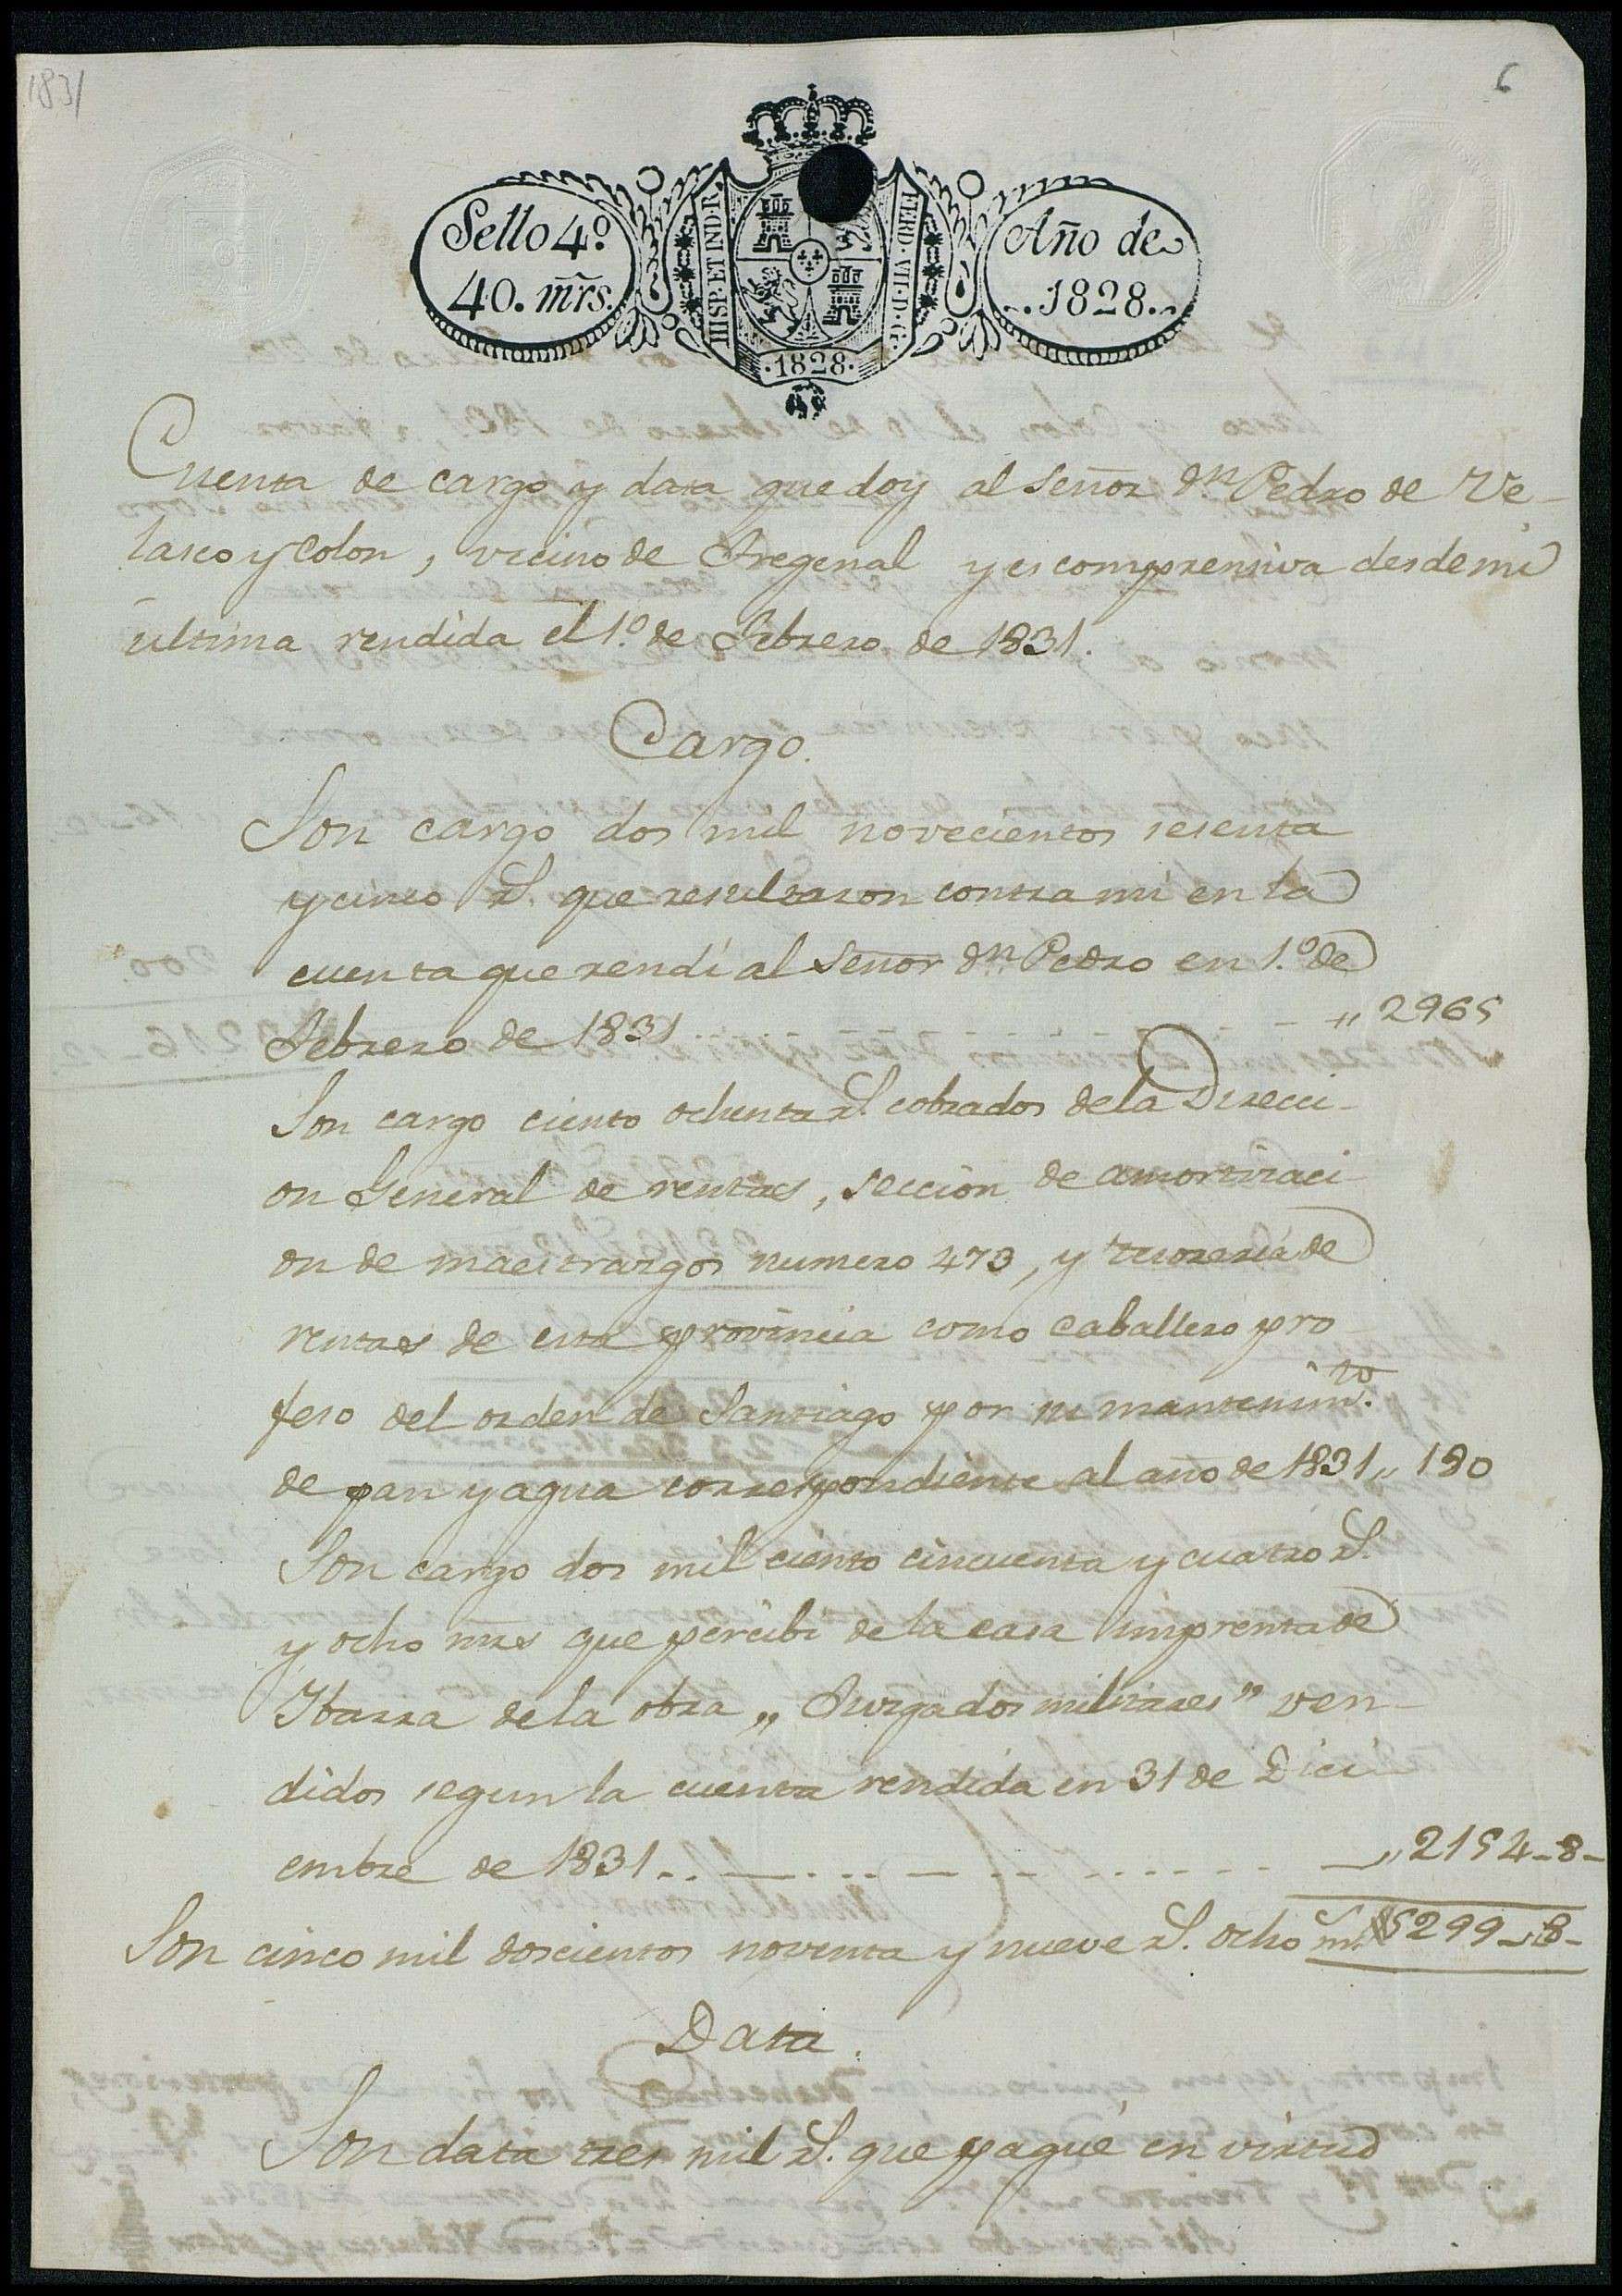 1831
6
Sello 4º
40. mrs.
HISP. ET IND. R.
FERD. VII. D. G.
·1828·
Año de
1828.
Cuenta de cargo y data que doy al Señor Dn Pedro de Ve-
lasco y Colon, vecino de Fregenal y es comprensiva desde mi
ultima rendida el 1º de Febrero de 1831.
Cargo.
Son cargo dos mil novecientos sesenta
y cinco rs. que resultaron contra mi en la
cuenta que rendí al Señor Dn Pedro en 1º de
Febrero de 1831 .......... ,, 2965
Son cargo ciento ochenta rs. cobrados de la Direcci-
on General de rentas, seccion de amortizaci-
on de maestrazgos numero 473, y tesoreria de
rentas de esta provincia como caballero pro-
feso del orden de Santiago por su mantenimto.
de pan y agua correspondiente al año de 1831 ,, 180
Son cargo dos mil ciento cincuenta y cuatro rs.
y ocho mrs que percibi de la casa imprenta de
Ibarra de la obra ,, Juzgados militares" ven-
didos segun la cuenta rendida en 31 de Dici-
embre de 1831 .......... ,, 2154-8-
Son cinco mil doscientos noventa y nueve rs. ocho ms 5299-8-
Data.
Son data tres mil rs. que pagué en virtud